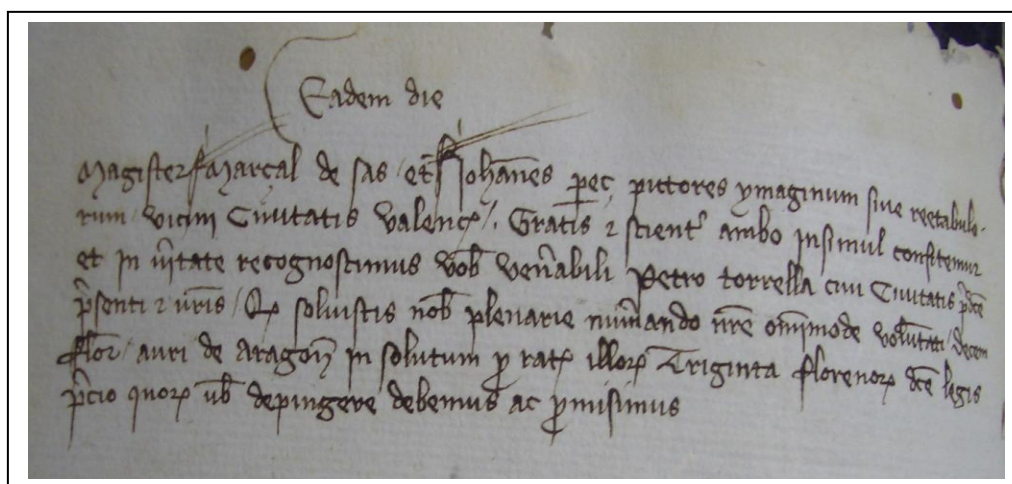 Eadem die
Magister Marçal de sas et Joh̄anes pereç pictores ymaginum sive reetabulo-
rum vicini Civitatis valencꝫ. Gratis ⁊ scient' ambo insimul confitemur
et in v̄itate recognoscimus vob̄ ven̄abili Petro torrella civi Civitatis p̄dc̄e
p̄senti ⁊ vr̄is / Qꝫ solvistis nob̄ plenarie num̄ando nr̄e om̄imode volūtati / decem
flor̄ / auri de aragon̄ in solutum ꝓ ratꝫ illorꝝ Triginta florenorꝝ dc̄e legis
p̄cio quorꝝ vob̄ depingere debemus ac ꝓmisimus